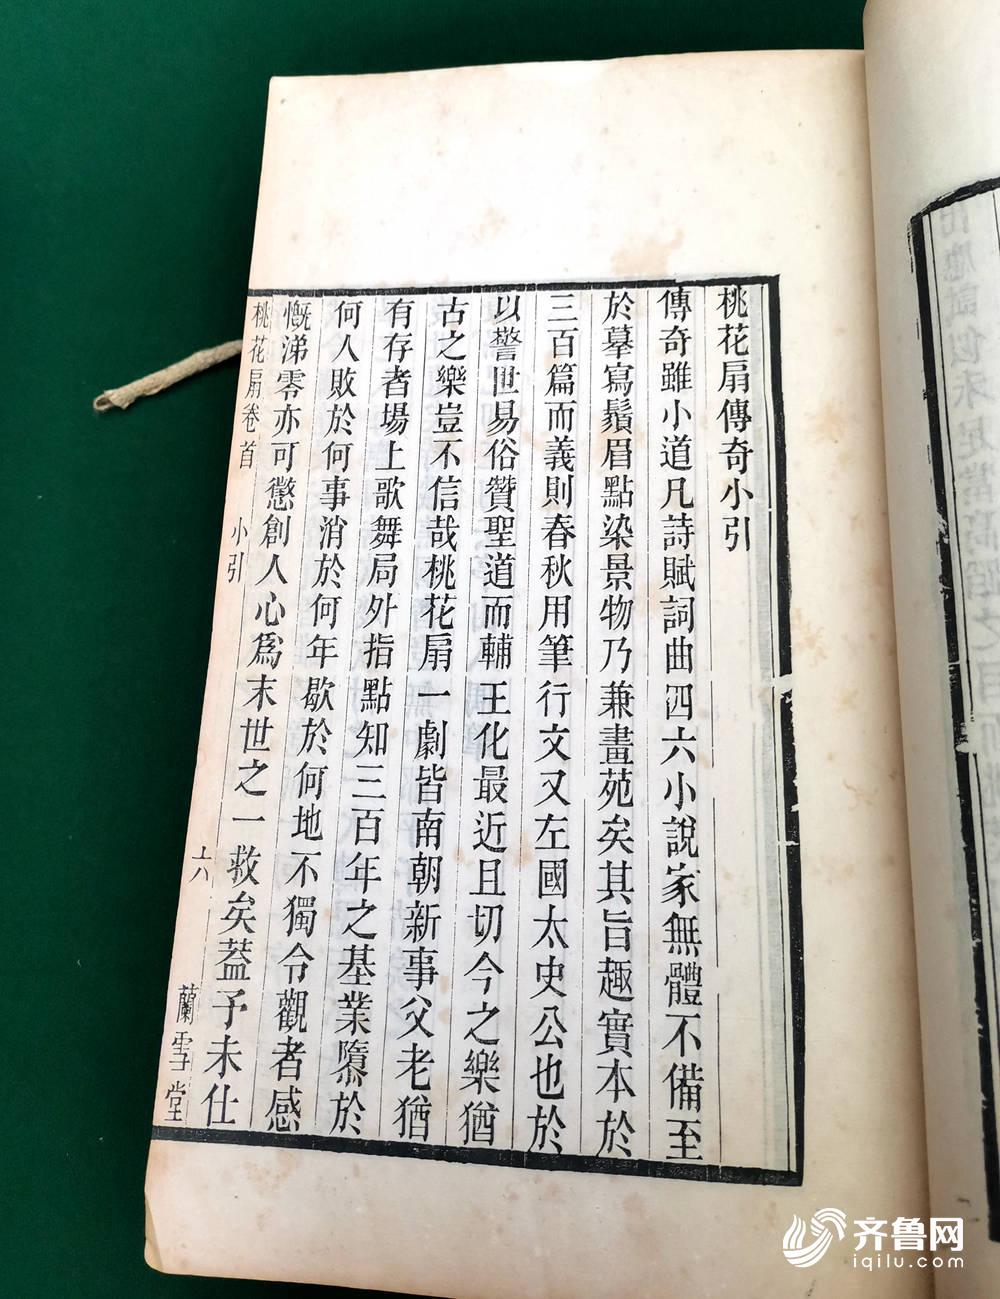 桃花扇傳奇小引
傳奇雖小道凡詩賦詞曲四六小說家無體不備至
於摹寫鬚眉點染景物乃兼畫苑矣其旨趣實本於
三百篇而義則春秋用筆行文又左國太史公也於
以警世易俗贊聖道而輔王化最近且切今之樂猶
古之樂豈不信哉桃花扇一劇皆南朝新事父老猶
有存者場上歌舞局外指點知三百年之基業隳於
何人敗於何事消於何年歇於何地不獨令觀者感
慨涕零亦可懲創人心爲末世之一救矣蓋予未仕
桃花扇卷首 小引 六 蘭雪堂
齐鲁网
iqilu.com